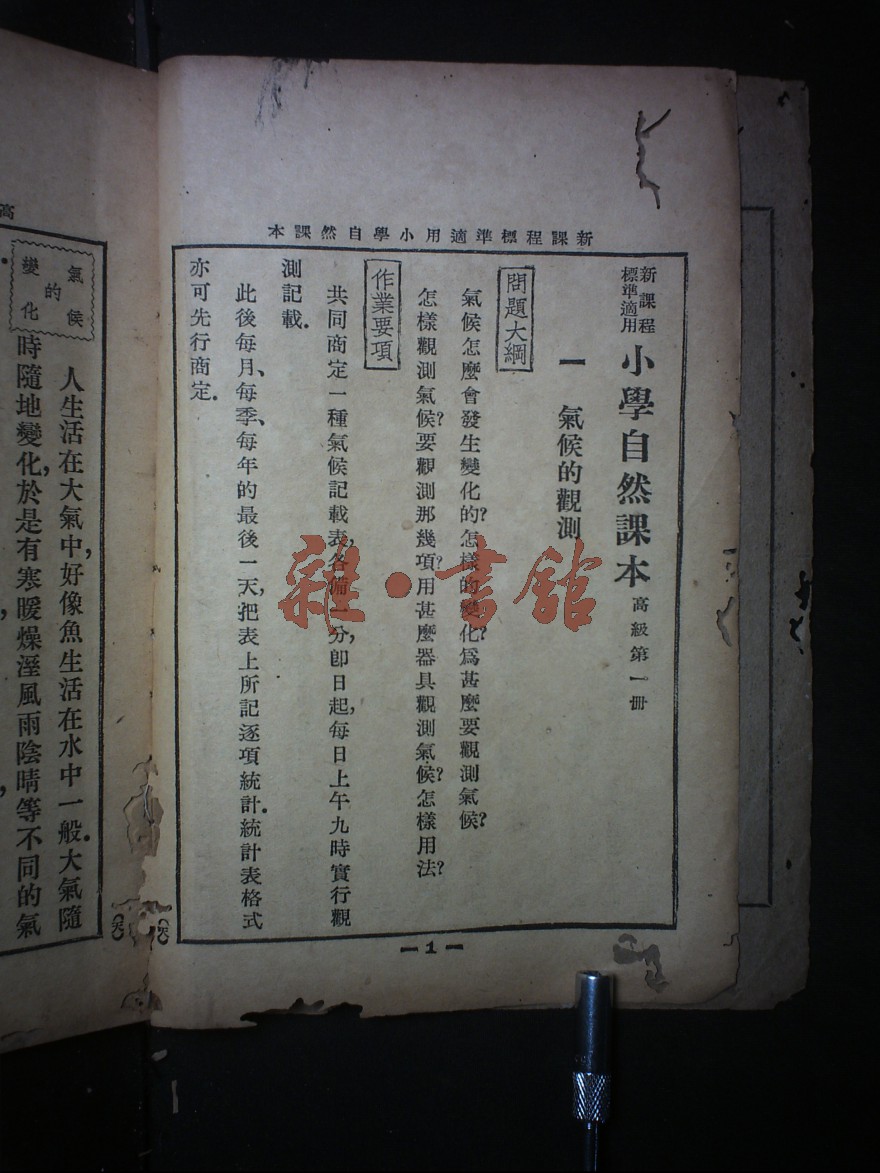 新課程標準適用小學自然課本
新課程
標準適用
小學自然課本
高級第一册
一　氣候的觀測
問題大綱
氣候怎麼會發生變化的?怎樣的變化?爲甚麼要觀測氣候?
怎樣觀測氣候?要觀測那幾項?用甚麼器具觀測氣候?怎樣用法?
作業要項
共同商定一種氣候記載表,各備一分,卽日起,每日上午九時實行觀
測記載.
此後每月、每季、每年的最後一天,把表上所記逐項統計.統計表格式
亦可先行商定.
—1—
高
氣候
的
變化
人生活在大氣中,好像魚生活在水中一般.大氣隨
時隨地變化,於是有寒暖燥溼風雨陰晴等不同的氣
雜·書館